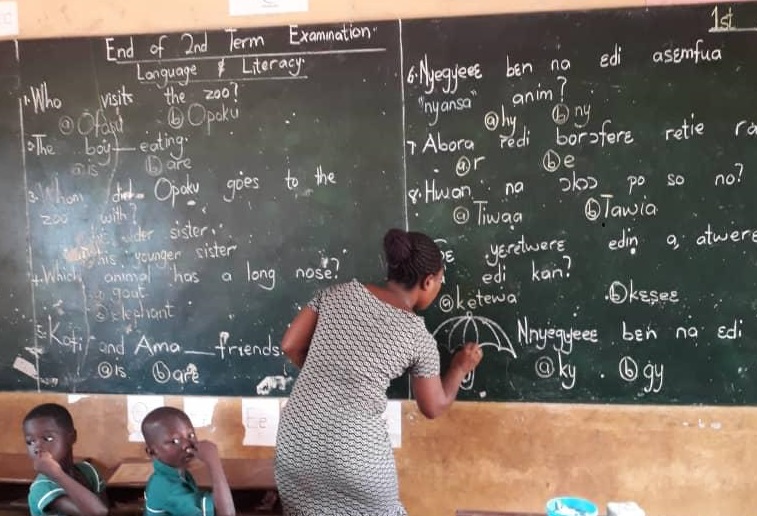 End of 2nd Term Examination
Language & Literacy
1. Who visits the zoo?
ⓐ Ofosu ⓑ Opoku
2. The boy eating.
ⓐ is ⓑ are
3. Whom did Opoku goes to the
zoo with?
elder sister.
ⓑ his younger sister
4. Which animal has a long nose?
ⓐ goat
ⓑ elephant
5. Kofi and Ama ___ friends.
ⓐ is ⓑ are
1st
6. Nyegyeeɛ bɛn na ɛdi asɛmfua
"nyansa" anim?
ⓐ hy ⓑ ny
7. Abora redi borɔfere retie
ⓐ r ⓑ e
8. Hwan na po so no?
ⓐ Tiwaa ⓑ Tawia
yɛretwerɛ edin a, atwerɛ
edi kan?
ⓐ ketewa ⓑ kɛseɛ
Nnyegyeeɛ bɛn na ɛdi
ⓐ ky . ⓑ gy
Ee